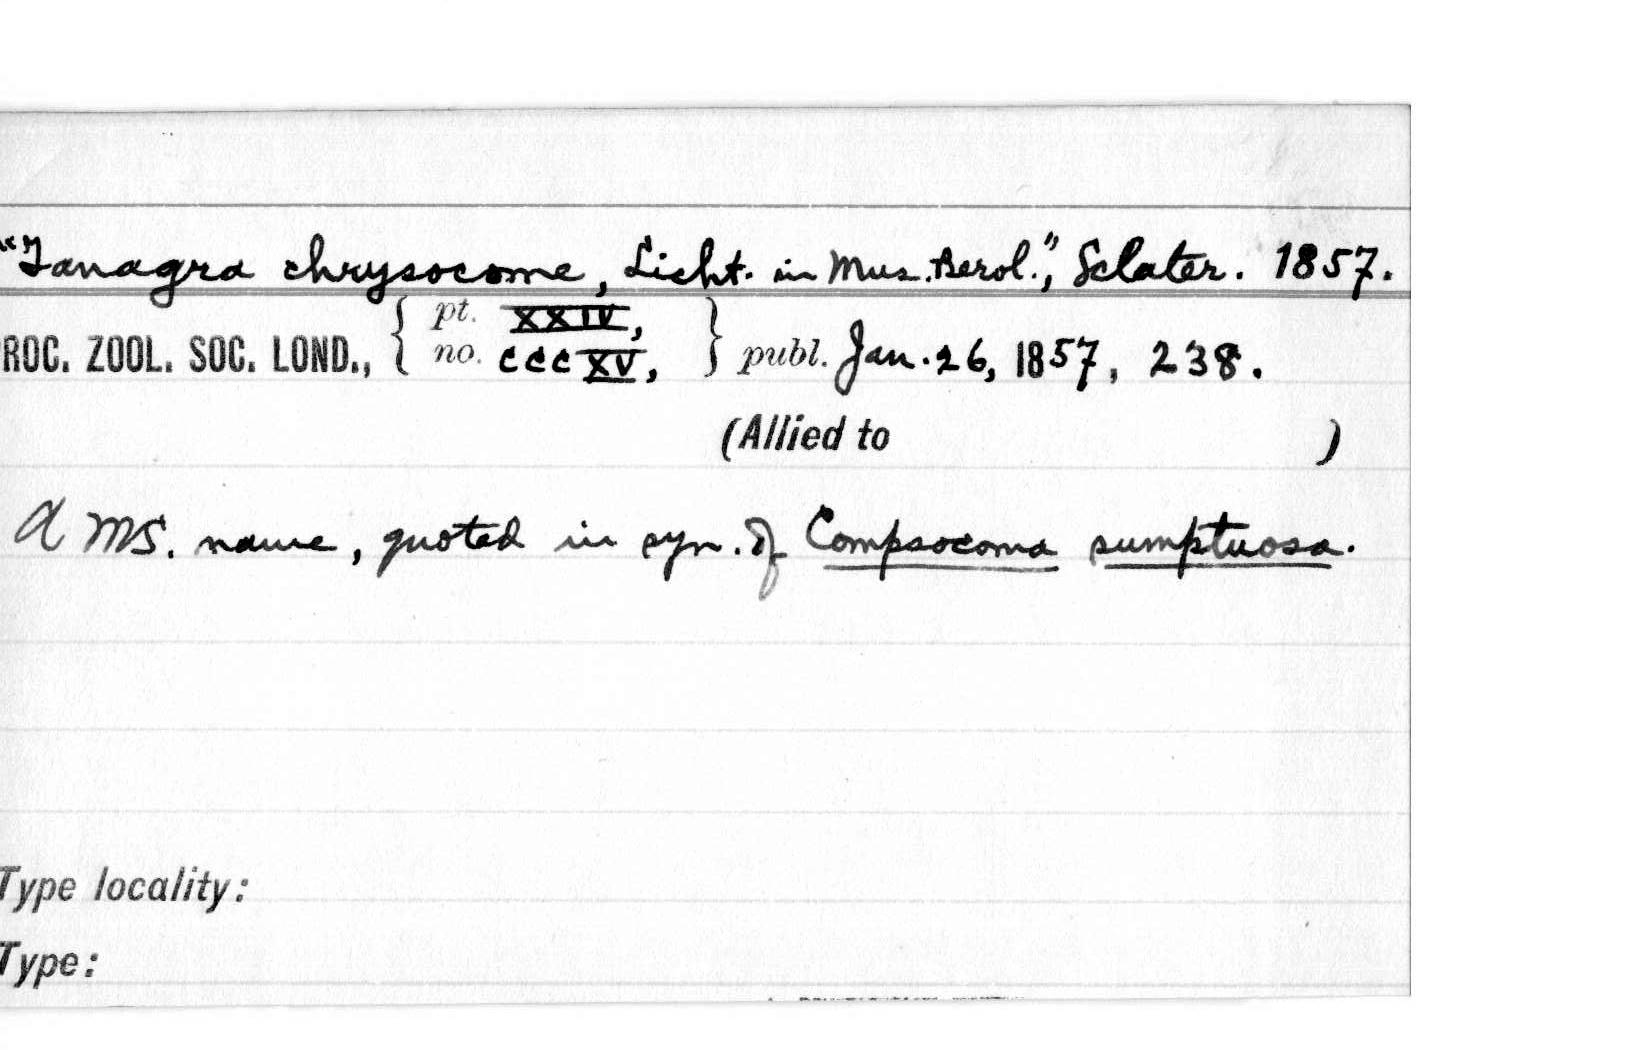 "Tanagra chrysocome, Licht. in Mus. Berol.", Sclater. 1857.
ROC. ZOOL. SOC. LOND., { pt. XXIV, no. CCCXV, } publ. Jan. 26, 1857, 238.
(Allied to )
A MS. name, quoted in syn. of Compsocoma sumptuosa.
Type locality:
Type: